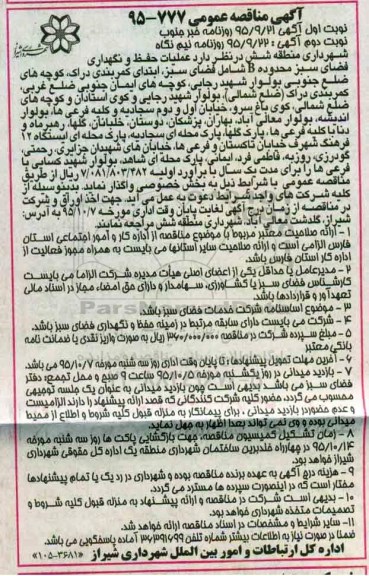 آگهی مناقصه عمومی ۷۷۷-۹۵
نوبت اول آگهی ۹۵/۹/۲۱ روزنامه خبر جنوب
نوبت دوم آگهی: ۹۵/۹/۲۲ روزنامه نیم نگاه
شهرداری منطقه شش در نظر دارد عملیات حفظ و نگهداری
فضای سبز محدوده B شامل فضای سبز، ابتدای کمربندی دراک، کوچه های
ضلع جنوبی بولوار شهید رجایی، کوچه های ایمان جنوبی ضلع غربی،
کمربندی دراک (ضلع شمالی)، بولوار شهید رجایی و کوی استادان و کوچه های
ضلع شمالی، کوی باغ سرو، خیابان اول و دوم سجادیه و کلیه فرعی ها، بولوار
اندیشه، بولوار معالی آباد، بهاران، پزشکان، دوستان، خلبانان، گلها، رهبر، ماه و
دنا با کلیه فرعی ها، پارک گلها، پارک محله ای سجادیه، پارک محله ای ایستگاه ۱۲
فرهنگ شهر، خیابان تاکستان و فرعی ها، خیابان های شهیدان جزایری، رحمتی،
گودرزی، روزبه، فاطمی فرد، ایمانی، پارک محله ای شاهد، بولوار شهید کسایی با
فرعی ها را برای مدت یک سال با برآورد اولیه ۷/۰۸۱/۸۰۳/۴۸۲ ریال از طریق
مناقصه عمومی با شرایط ذیل به بخش خصوصی واگذار نماید. بدینوسیله از
کلیه شرکت های واجد شرایط دعوت به عمل می آید. جهت اخذ اوراق و شرکت
در مناقصه از زمان درج آگهی لغایت پایان وقت اداری مورخه ۹۵/۱۰/۷ به آدرس:
شیراز، گلدشت معالی آباد، شهرداری منطقه شش مراجعه نمایند.
۱- ارائه صلاحیت معتبر مربوط با موضوع مناقصه از اداره کار و امور اجتماعی استان
فارس الزامی است و ارائه صلاحیت سایر استانها می بایست به همراه مجوز فعالیت از
اداره کار استان فارس باشد.
۲- مدیرعامل یا حداقل یکی از اعضای اصلی هیأت مدیره شرکت الزاما می بایست
کارشناس فضای سبز یا کشاورزی، سهامدار و دارای حق امضاء مجاز در اسناد مالی
تعهدآور و قراردادها باشد.
۳- موضوع اساسنامه شرکت خدمات فضای سبز باشد.
۴- شرکت می بایست دارای سابقه مرتبط در زمینه حفظ و نگهداری فضای سبز باشد.
۵- مبلغ سپرده شرکت در مناقصه ۳۶۰/۰۰۰/۰۰۰ ریال به صورت واریز نقدی یا ضمانت نامه
بانکی معتبر
۶- آخرین مهلت تحویل پیشنهادها: تا پایان وقت اداری روز سه شنبه مورخه ۹۵/۱۰/۷ می باشد.
۷- بازدید میدانی در روز یکشنبه مورخه ۹۵/۱۰/۵ ساعت ۹ صبح و محل تجمع: دفتر
فضای سبز می باشد. بدیهی است چون بازدید میدانی به عنوان یک جلسه توجیهی
محسوب می گردد، حضور کلیه شرکت کنندگانی که قصد ارائه پیشنهاد را دارند الزامیست
و عدم حضور در بازدید میدانی، برای پیمانکار به منزله قبول کلیه شروط و اطلاع از محیط
میدانی بوده و وی نمی تواند بعدا اظهار به جهل نماید.
۸- زمان تشکیل کمیسیون مناقصه، جهت بازگشایی پاکت ها روز سه شنبه مورخه
۹۵/۱۰/۱۴ در چهارراه خلدبرین ساختمان شهرداری منطقه یک اداره کل حقوقی شهرداری
شیراز خواهد بود.
۹- هزینه درج آگهی به عهده برنده مناقصه بوده و شهرداری در رد یک یا تمام پیشنهادها
مختار است که در اینصورت سپرده ها مسترد می گردد.
۱۰- بدیهی است شرکت در مناقصه و ارائه پیشنهاد به منزله قبول کلیه شروط و
تصمیمات متخذه شهرداری خواهد بود.
۱۱- سایر شرایط و مشخصات در اسناد مناقصه ارائه خواهد شد.
ضمنا در صورت نیاز به اطلاعات بیشتر شماره تلفن ۳۶۳۹۱۶۹۹ آماده پاسخگویی می باشد.
اداره کل ارتباطات و امور بین الملل شهرداری شیراز «۳۶۸۱-۱۰۵»